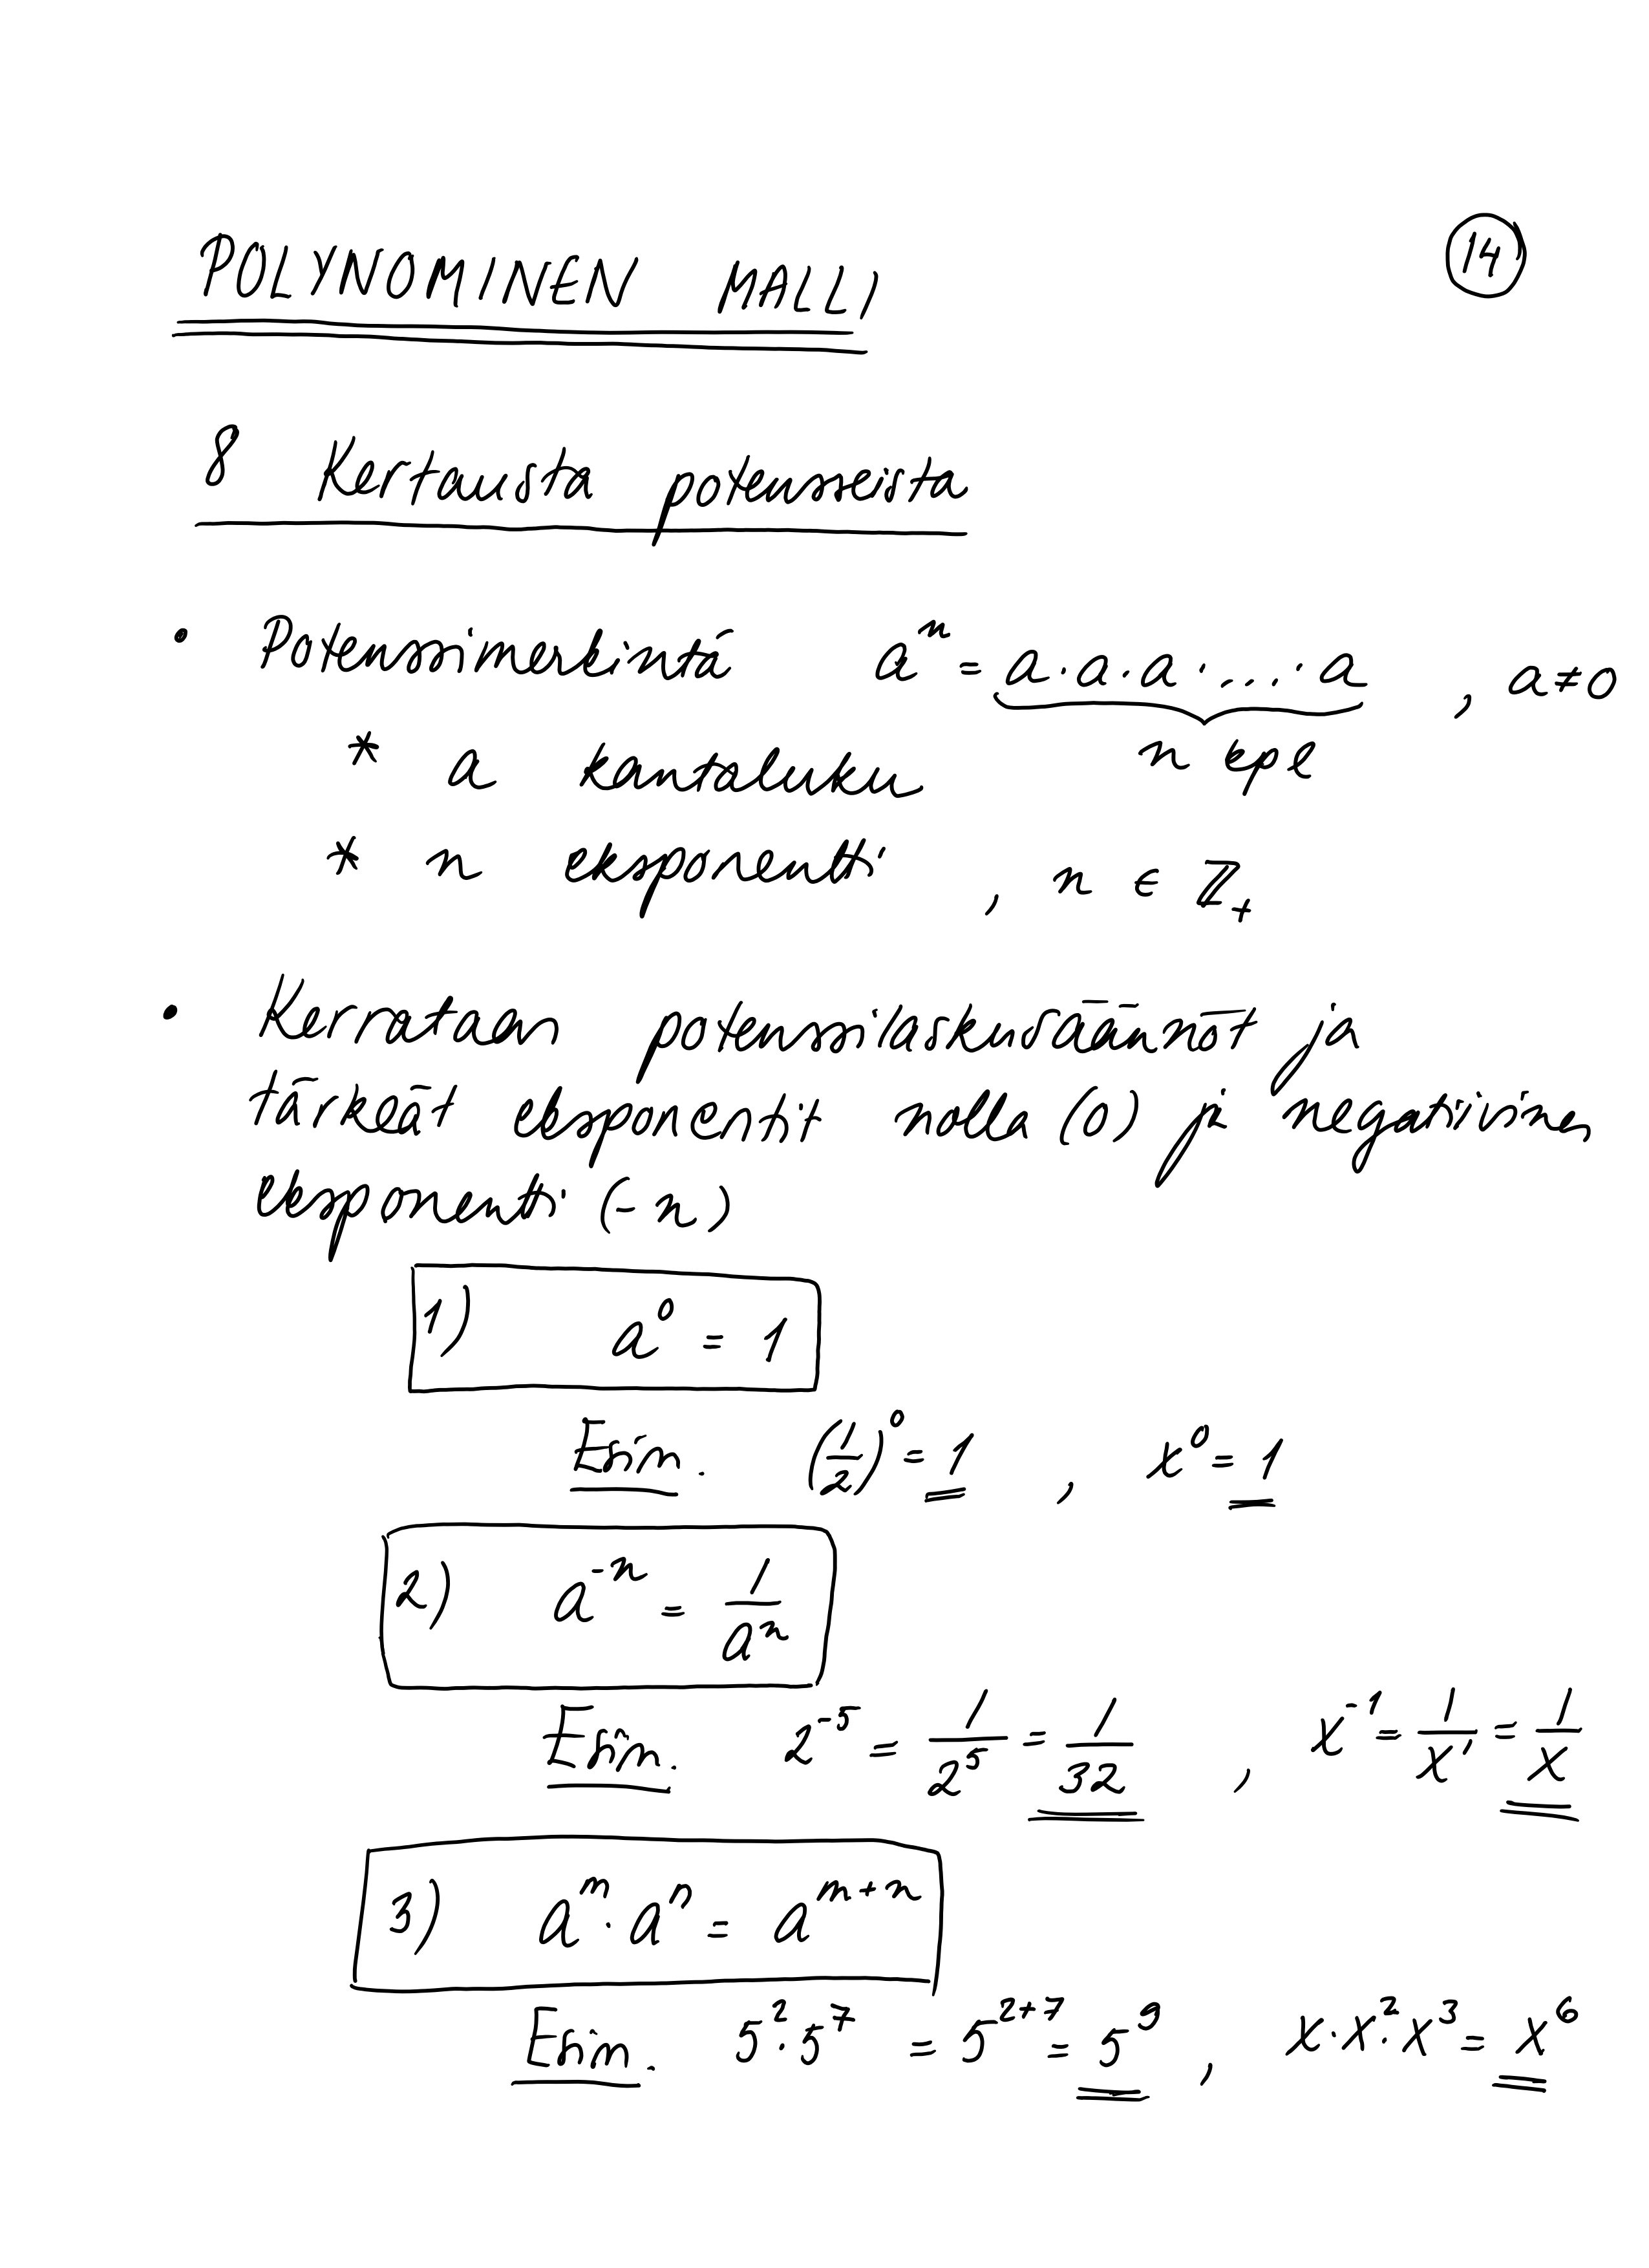 POLYNOMINEN MALLI
14
8 Kertausta potensseista
• Potenssimerkintä aⁿ = a · a · a · ... · a , a ≠ 0
* a kantaluku n kpl
* n eksponentti , n ∈ ℤ₊
• Kerrataan potenssilaskusäännöt ja
tärkeät eksponentit nolla (0) ja negatiivinen
eksponentti (-n)
1) a⁰ = 1
Esim. (1/2)⁰ = 1 , x⁰ = 1
2) a⁻ⁿ = 1/aⁿ
Esim. 2⁻⁵ = 1/2⁵ = 1/32 , x⁻¹ = 1/x¹ = 1/x
3) aᵐ · aⁿ = aᵐ⁺ⁿ
Esim. 5² · 5⁷ = 5²⁺⁷ = 5⁹ , x · x² · x³ = x⁶